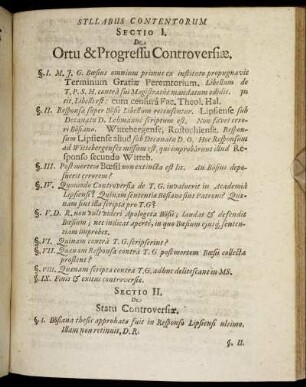 SYLLABUS CONTENTORUM
SECTIO I.
De
Ortu & Progressu Controversiæ.
§. I. M. J. G. Bœsius omnium primus ex instituto propugnavit
Terminum Gratiæ Peremtorium. Libellum de
T. P. S. H. contra sui Magistratus mandatum edidit.
rit, Libellus: cum censurâ Fac. Theol. Hal.
§. II. Responsa super Bösii Libellum recensentur. Lipsiense sub
Decanatu D. Lehmanni scriptum est. Non favet erro-
ri Bösiano. Wittebergense, Rostochiense. Respon-
sum Lipsiense aliud sub Decanatu D. O. Hoc Responsum
ad Wittebergenses missum est, qui improbârunt illud Re-
sponso secundo Witteb.
§. III. Post mortem Bœsii non extincta est lis. An Bösius depo-
suerit errorem?
§. IV. Quomodo Controversia de T. G. invaluerit in Academiâ
Lipsiensi? Quis in sententiâ Bösianâ sius Patronus? Quæ-
nam sint illa scripta pro T. G.?
§. V. D. R. non vult videri Apologeta Bösii; laudat & defendit
Bösium; nec indicat apertè, in quo Bösium ejusq; senten-
tiam improbet.
§. VI. Quinam contrà T. G. scripserint?
§. VII. Quænam Responsa contrà T. G. post mortem Bœsii collecta
prostent?
§. VIII. Quænam scripta contrà T. G. adhuc delitescant in MS.
§. IX. Fons & exitus controversiæ.
SECTIO II.
De
Statu Controversiæ.
§. I. Bösiana thesis approbata fuit in Responso Lipsiensi ultimo.
Illam non retinuit, D. R.
§. II.